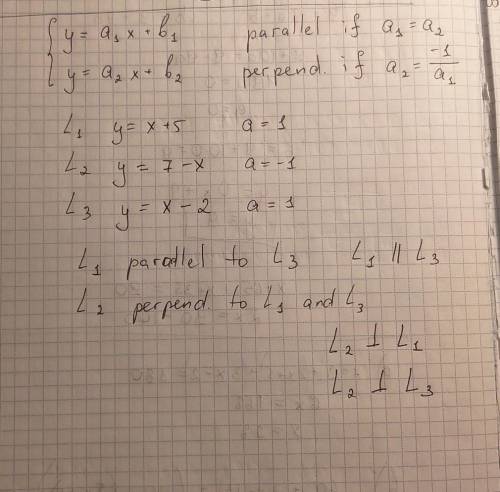 { y = a₁ x + b₁ parallel if a₁ = a₂
{ y = a₂ x + b₂ perpend. if a₂ = -1/a₁
L₁ y = x + 5 a = 1
L₂ y = 7 - x a = -1
L₃ y = x - 2 a = 1
L₁ parallel to L₃ L₁ || L₃
L₂ perpend. to L₁ and L₃
L₂ ⊥ L₁
L₂ ⊥ L₃